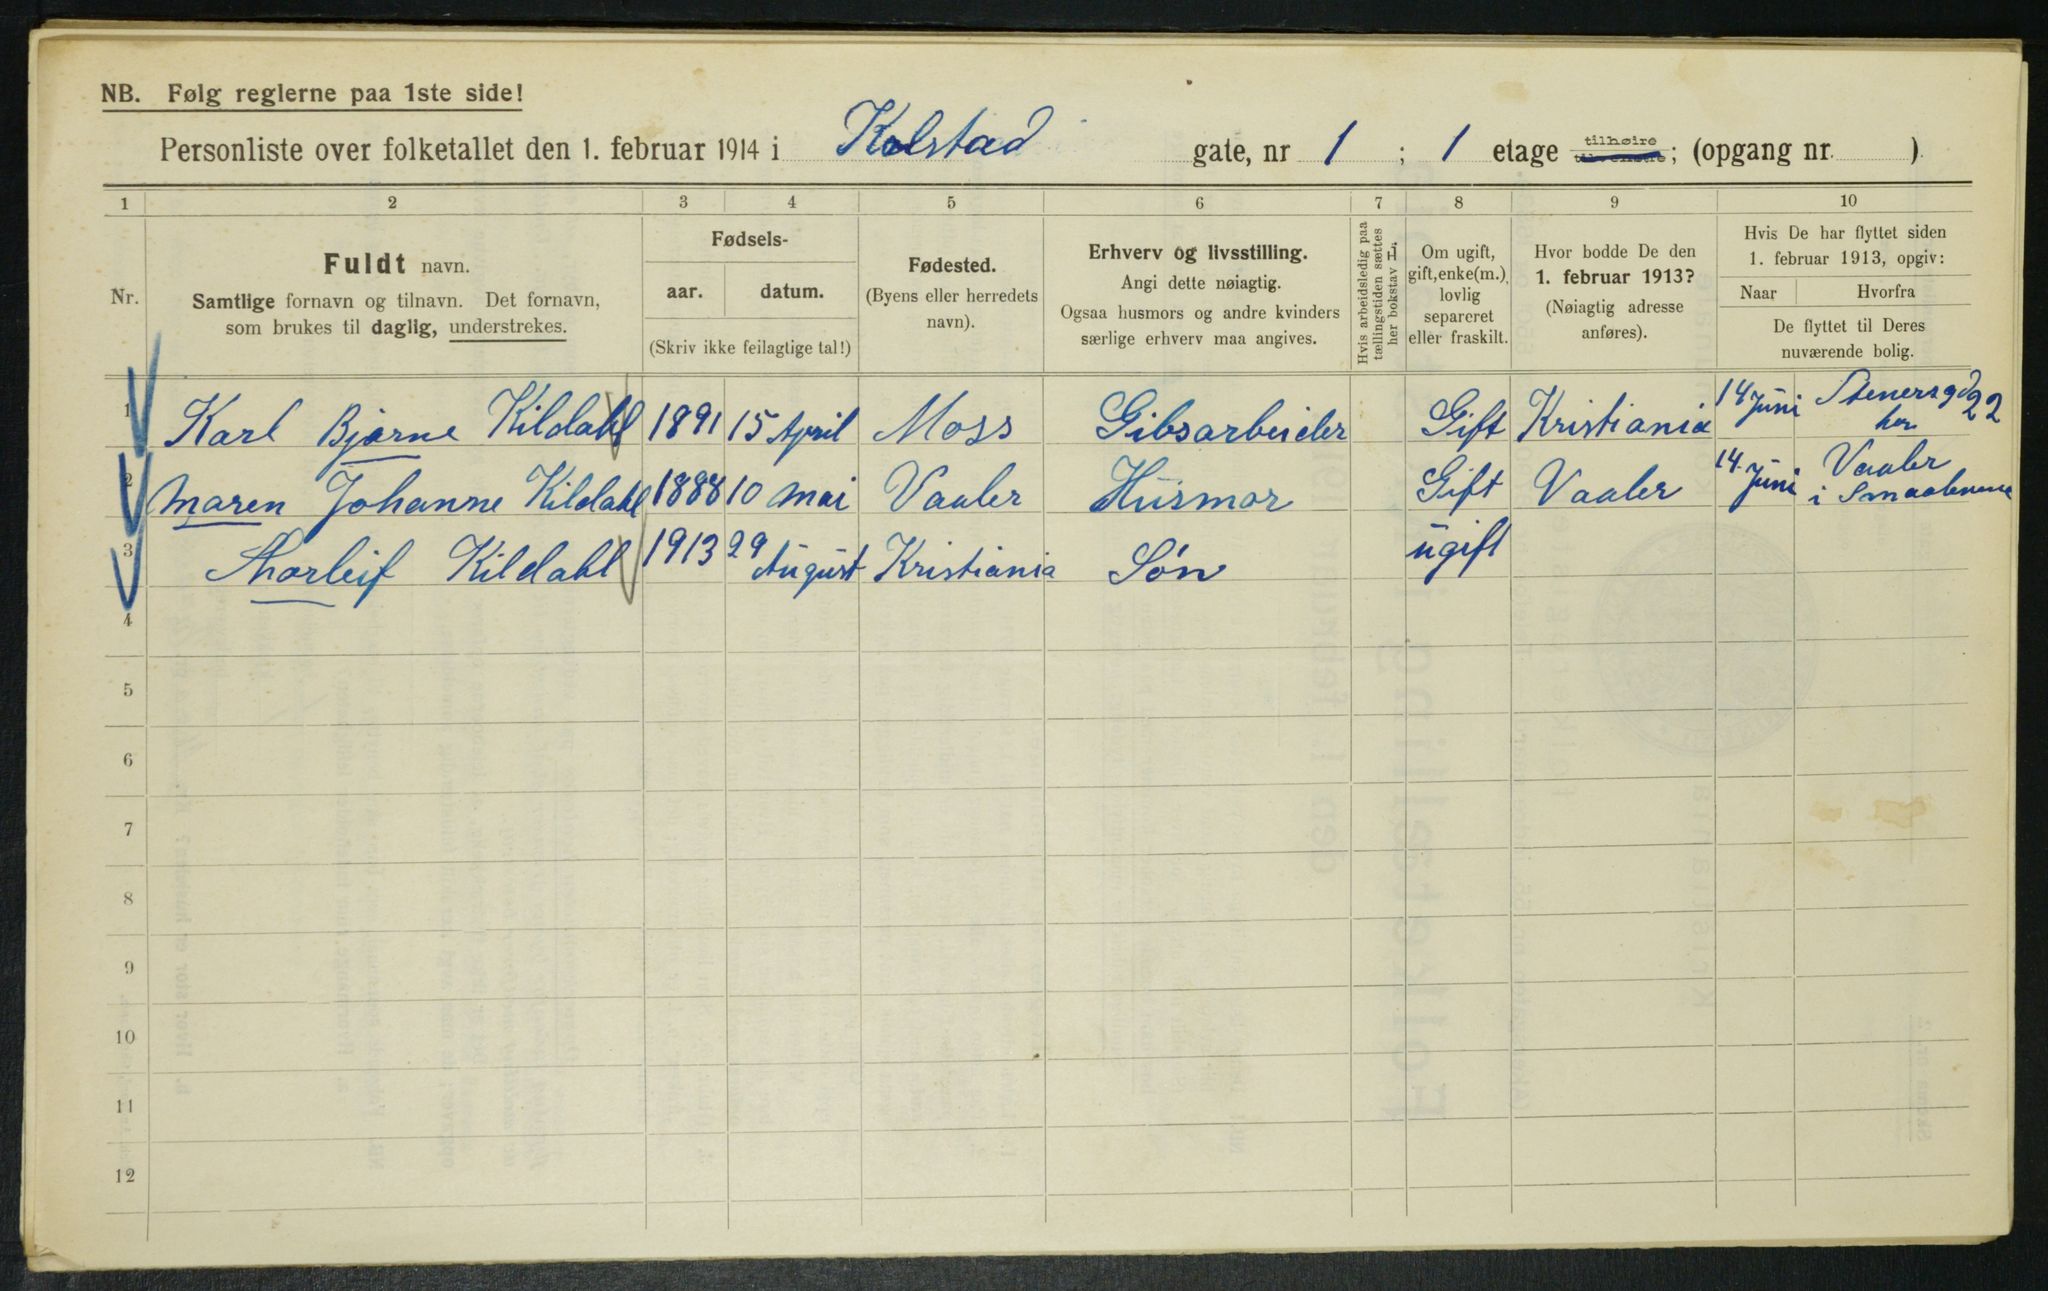 NB. Følg reglerne paa 1ste side!
Personliste over folketallet den 1. februar 1914 i Kolstad gate, nr 1 ; 1 etage tilhøire ; (opgang nr. )
1 2 3 4 5 6 7 8 9 10
Nr.
Fuldt navn.
Samtlige fornavn og tilnavn. Det fornavn,
som brukes til daglig, understrekes.
Fødsels-
aar. datum.
(Skriv ikke feilagtige tal!)
Fødested.
(Byens eller herredets
navn).
Erhverv og livsstilling.
Angi dette nøiagtig.
Ogsaa husmors og andre kvinders
særlige erhverv maa angives.
Hvis arbeidsledig paa
tællingstiden sættes
her bokstav L.
Om ugift,
gift, enke(m.),
lovlig
separeret
eller fraskilt.
Hvor bodde De den
1. februar 1913?
(Nøiagtig adresse
anføres).
Hvis De har flyttet siden
1. februar 1913, opgiv:
Naar Hvorfra
De flyttet til Deres
nuværende bolig.
1 Karl Bjarne Kildahl 1891 15 April Moss Gibsarbeider Gift Kristiania 14 Juni Stenersgd 22
her
2 Maren Johanne Kildahl 1888 10 Mai Vaaler Husmor Gift Vaaler 14. Juni Vaaler
i Smaalenene
3 Thorleif Kildahl 1913 29 August Kristiania Søn ugift
4
5
6
7
8
9
10
11
12